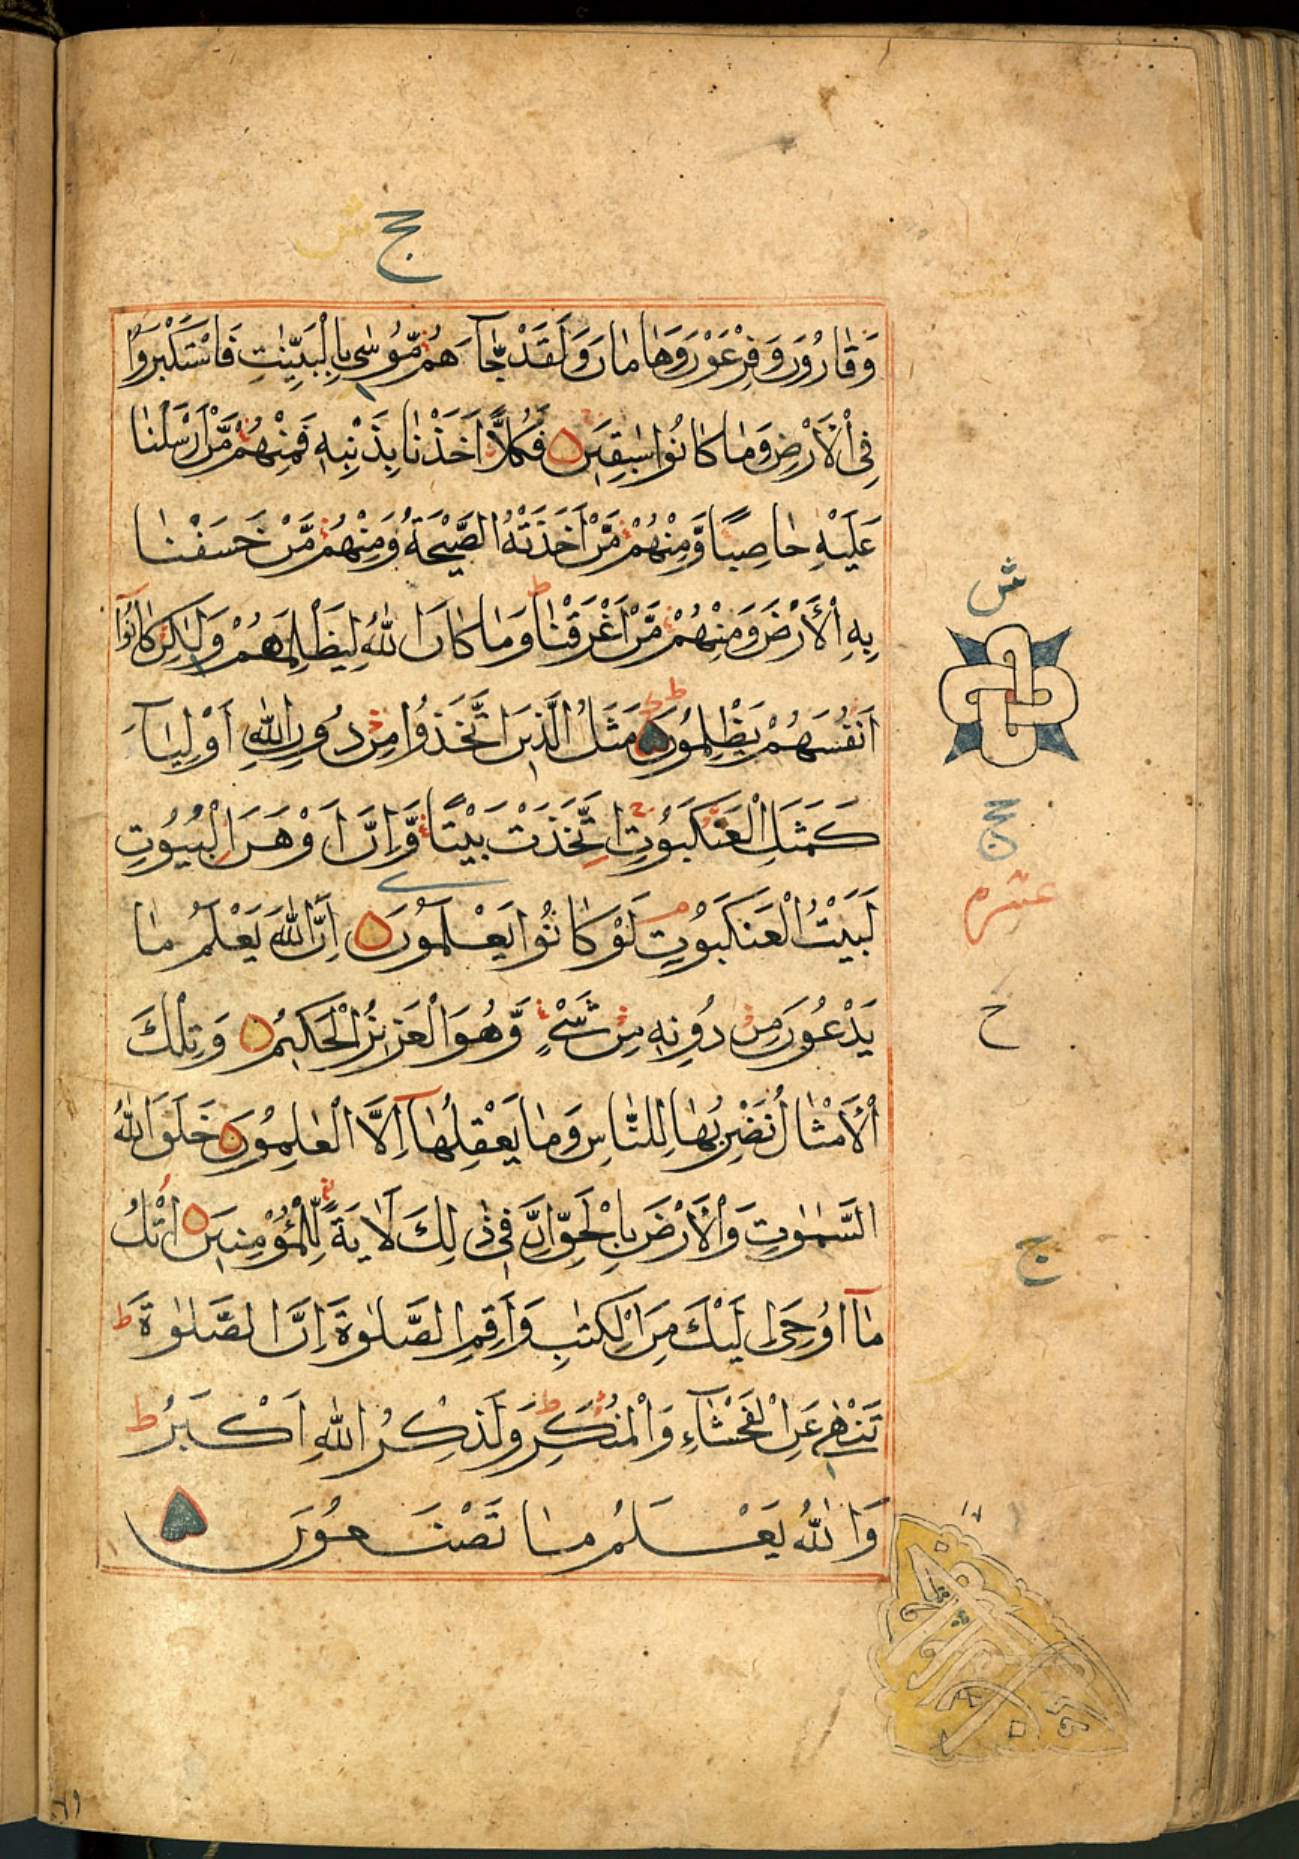 ج ش
وَقَارُونَ وَفِرْعَوْنَ وَهَامَانَ وَلَقَدْ جَآءَهُمْ مُّوْسٰى بِالْبَيِّنٰتِ فَاسْتَكْبَرُوْا
فِى الْاَرْضِ وَمَا كَانُوْا سٰبِقِيْنَ فَكُلًّا اَخَذْنَا بِذَنْۢبِهٖ فَمِنْهُمْ مَّنْ اَرْسَلْنَا
عَلَيْهِ حَاصِبًا وَّمِنْهُمْ مَّنْ اَخَذَتْهُ الصَّيْحَةُ وَمِنْهُمْ مَّنْ خَسَفْنَا
بِهِ الْاَرْضَ وَمِنْهُمْ مَّنْ اَغْرَقْنَا ط وَمَا كَانَ اللّٰهُ لِيَظْلِمَهُمْ وَلٰكِنْ كَانُوْآ
اَنْفُسَهُمْ يَظْلِمُوْنَ ط مَثَلُ الَّذِيْنَ اتَّخَذُوْا مِنْ دُوْنِ اللّٰهِ اَوْلِيَآءَ
كَمَثَلِ الْعَنْكَبُوْتِ اِتَّخَذَتْ بَيْتًا وَّاِنَّ اَوْهَنَ الْبُيُوْتِ
لَبَيْتُ الْعَنْكَبُوْتِ م لَوْ كَانُوْا يَعْلَمُوْنَ اِنَّ اللّٰهَ يَعْلَمُ مَا
يَدْعُوْنَ مِنْ دُوْنِهٖ مِنْ شَىْءٍ وَّهُوَ الْعَزِيْزُ الْحَكِيْمُ وَتِلْكَ
الْاَمْثَالُ نَضْرِبُهَا لِلنَّاسِ وَمَا يَعْقِلُهَآ اِلَّا الْعٰلِمُوْنَ خَلَقَ اللّٰهُ
السَّمٰوٰتِ وَالْاَرْضَ بِالْحَقِّ اِنَّ فِىْ ذٰلِكَ لَاٰيَةً لِّلْمُؤْمِنِيْنَ اُتْلُ
مَآ اُوْحِىَ اِلَيْكَ مِنَ الْكِتٰبِ وَاَقِمِ الصَّلٰوةَ اِنَّ الصَّلٰوةَ ط
تَنْهٰى عَنِ الْفَحْشَآءِ وَالْمُنْكَرِ ط وَلَذِكْرُ اللّٰهِ اَكْبَرُ ط
وَاللّٰهُ يَعْلَمُ مَا تَصْنَعُوْنَ
ش
ج
عشرم
ح
ج